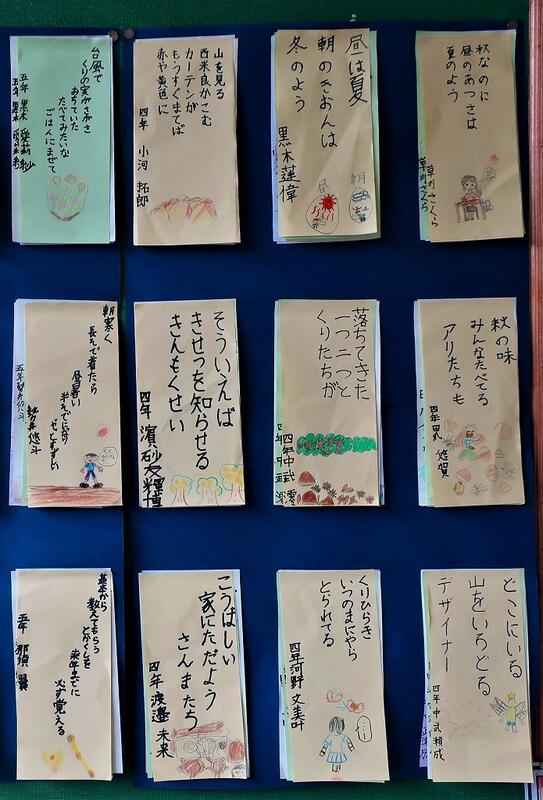 秋なのに
昼のあつさは
夏のよう
草川さくら
昼は夏
朝のきおんは
冬のよう
黒木蓮偉
昼
朝
山を見る
西米良かこむ
カーテンが
もうすぐまてば
赤や黄色に
四年 小河 拓郎
台風で
くりの実がふさふさ
おちていた
たべてみたいな
ごはんにまぜて
五年 黒木
秋の味
みんなたべてる
アリたちも
四年 悠賀
落ちてきた
一つ二つと
くりたちが
四年中武 澪
そういえば
きせつを知らせる
きんもくせい
四年 濵砂友糧博
朝寒く
長そで着たら
昼暑い
半そでに
悠斗
どこにいる
山をいろどる
デザイナー
四年 中武 頼成
くりひらき
いつのまにやら
とられてる
四年 河野 文美叶
こうばしい
家にただよう
さんまたち
四年 渡邉 未来
基本から
教えてもらう
とかくしを
来年までに
必ず覚える
五年 那須 翼